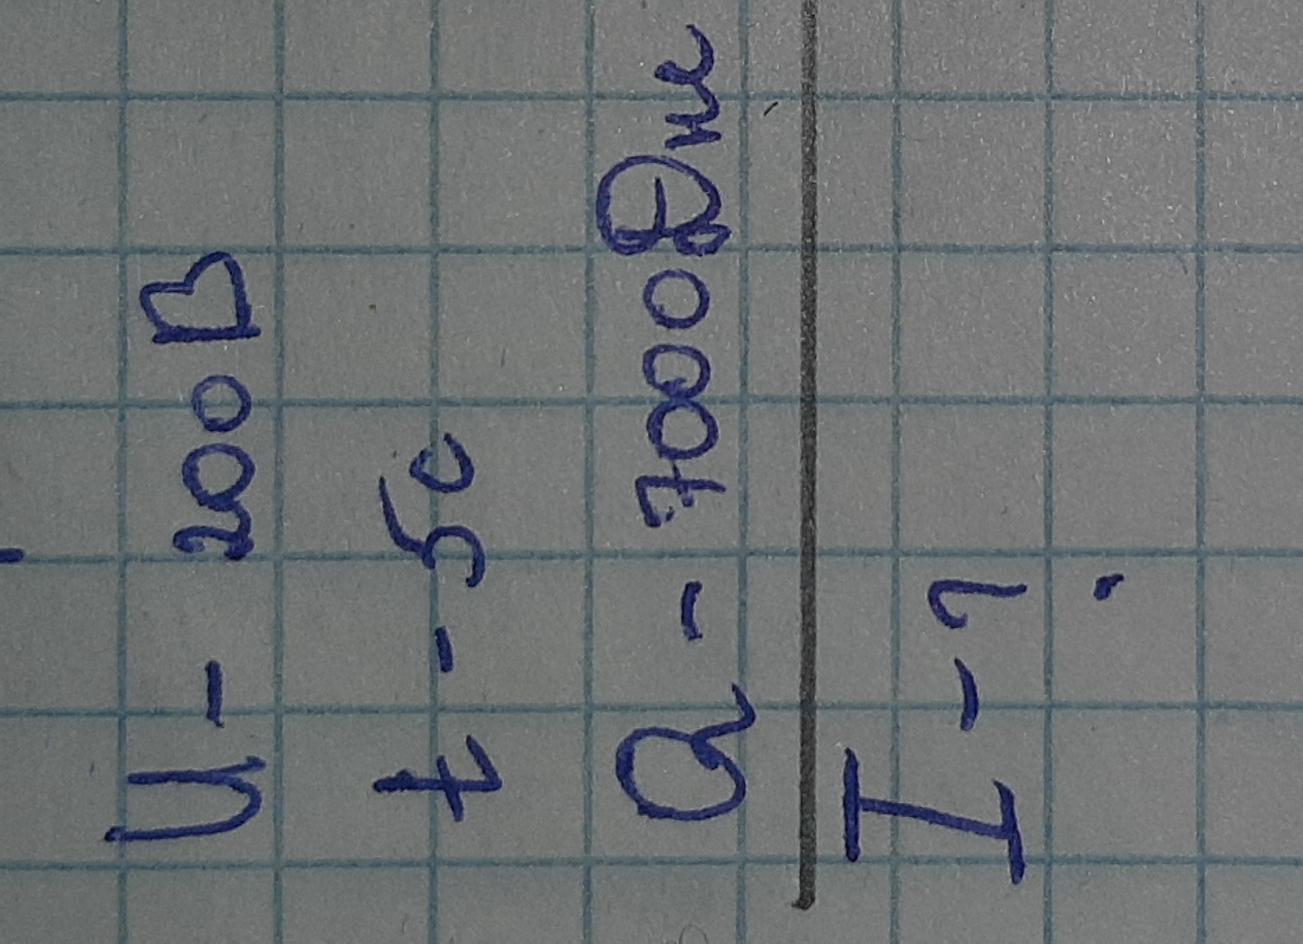 U - 200 В
t - 5c
Q - 7000 Дж
I - ?